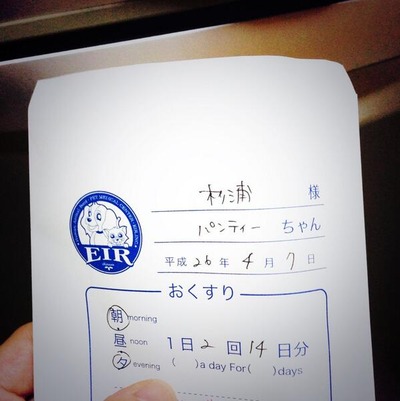 杉浦 様
パンティー ちゃん
平成 26 年 4 月 7 日
EIR
おくすり
朝 morning
昼 noon
夕 evening
1日 2 回 14 日分
( )a day For( )days